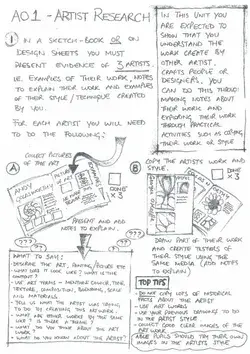 AO1 - ARTIST RESEARCH
1 IN A SKETCH-BOOK OR ON
DESIGN SHEETS YOU MUST
PRESENT EVIDENCE OF 3 ARTISTS.
I.E. EXAMPLES OF THEIR WORK, NOTES
TO EXPLAIN THEIR WORK AND EXAMPLES
OF THEIR STYLE/TECHNIQUE CREATED
BY YOU.
FOR EACH ARTIST YOU WILL NEED
TO DO THE FOLLOWING:
IN THIS UNIT
YOU ARE EXPECTED TO
SHOW THAT YOU
UNDERSTAND THE
WORK CREATE BY
OTHER ARTIST,
CRAFTS PEOPLE OR
DESIGNERS, YOU
CAN DO THIS THROUGH
MAKING NOTES ABOUT
THEIR WORK AND
EXPLORING THEIR WORK
THROUGH PRACTICAL
ACTIVITIES SUCH AS COPYING
THEIR WORK OR STYLE
COLLECT PICTURES
OF THE ART
A
DONE
X3
PRESENT AND ADD
NOTES TO EXPLAIN.
B
COPY THE ARTISTS WORK AND
STYLE.
DONE
X3
DRAW PART OF THEIR WORK
AND CREATE TESTERS OF
THEIR STYLE USING THE
SAME MEDIA (ADD NOTES
TO EXPLAIN)
???
???
WHAT TO SAY?
WHAT DOES IT LOOK LIKE? WHAT IS THE
USE ART TERMS - MENTION COLOUR, TONE,
TEXTURE, COMPOSITION,
AND MATERIALS.
TELL US WHAT THE ARTIST WAS TRYING
TO DO BY CREATING THIS ARTWORK.
WHAT DO YOU THINK ABOUT THE ART
WORK?
WHAT DO YOU KNOW ABOUT THE ARTIST?
TOP TIPS
DO NOT COPY LOTS OF HISTORICAL
FACTS ABOUT THE ARTIST
USE ART WORDS
USE YOUR PREVIOUS DRAWINGS TO DO
IN THE ARTIST STYLE
COLLECT GOOD CLEAR IMAGES OF THE
ART WORK
ABLE PUPILS SHOULD TRY THEIR OWN
IMAGES IN THE ARTISTS STYLE